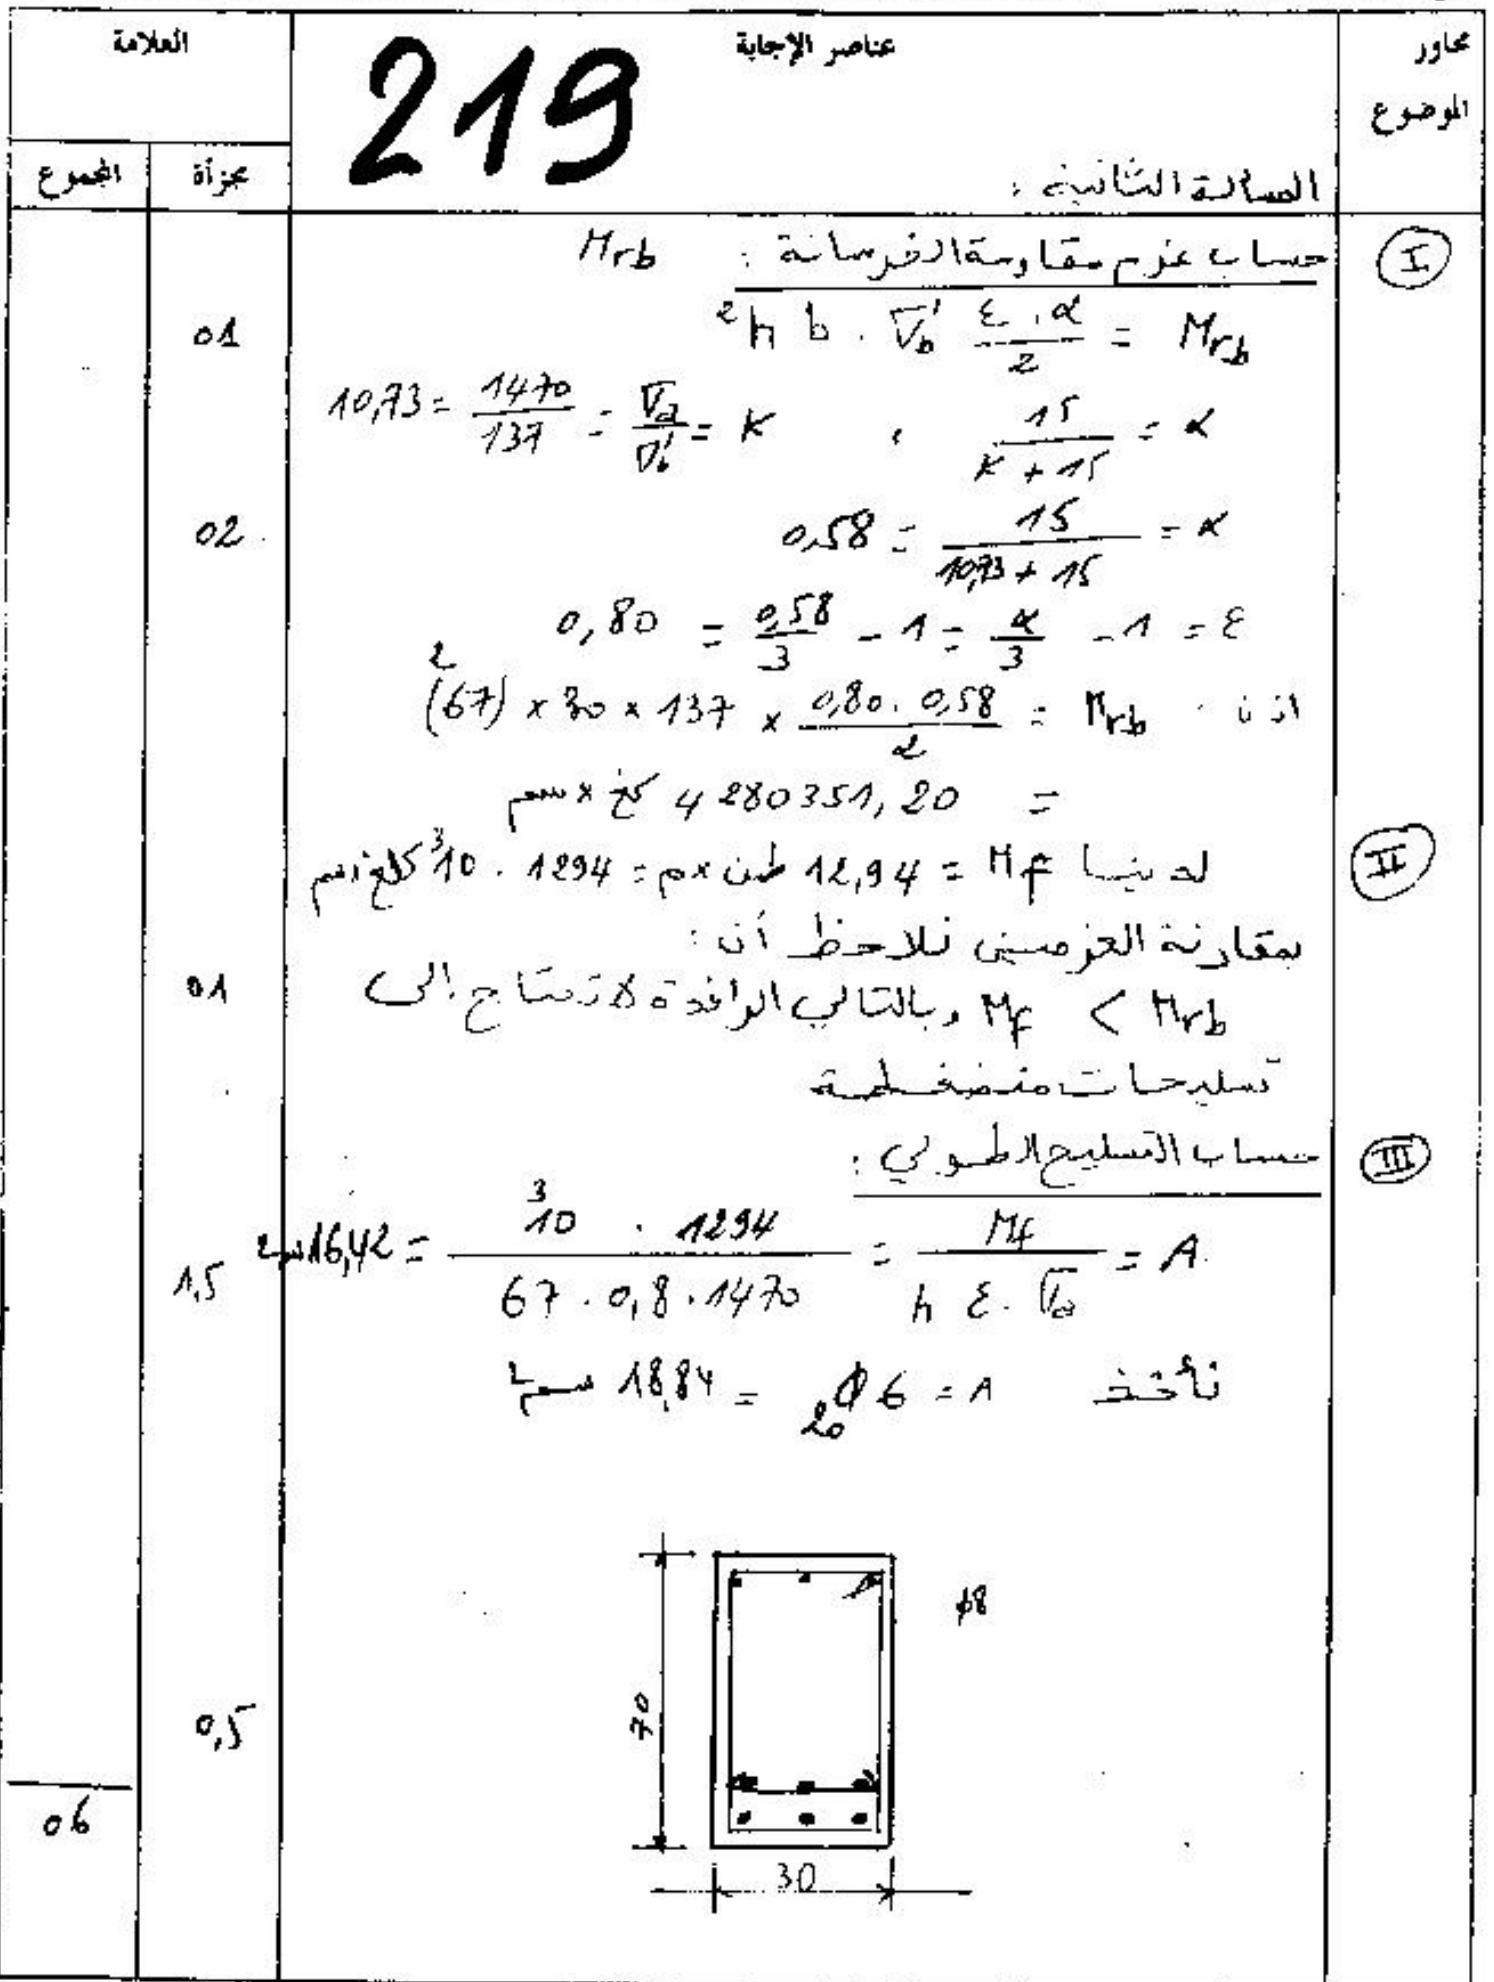 محاور الموضوع
عناصر الإجابة
العلامة
مجزأة
المجموع
219
المسألة الثانية :
I
حساب عزم مقاومة الخرسانة : Mrb
Mrb = (α . ε)/2 . σ'b . b h²
01
α = 15/(K + 15) ، K = σa/σ'b = 1470/137 = 10,73
α = 15/(10,73 + 15) = 0,58
02
ε = 1 - α/3 = 1 - 0,58/3 = 0,80
اذن : Mrb = (0,58 . 0,80)/2 × 137 × 30 × (67)²
= 4 280351,20 كغ × سم
II
لدينا Mf = 12,94 طن × م = 1294 . 10³ كلغ/سم
بمقارنة العزمين نلاحظ أن :
Mrb > Mf وبالتالي الرافدة لا تحتاج الى
01
تسليحات منضغطة
III
حساب التسليح الطولي :
A = Mf/(σa . ε h) = 1294 . 10³/(1470 . 0,8 . 67) = 16,42 سم²
1,5
نأخذ A = 6 Φ20 = 18,84 سم²
φ8
70
0,5
30
06